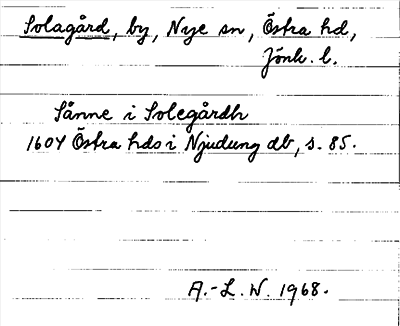 Solagård, by, Nye sn, Östra hd,
Jönk. l.
Sånne i Solegårdh
1604 Östra hds i Njudung db, s. 85.
A.-L. W. 1968.